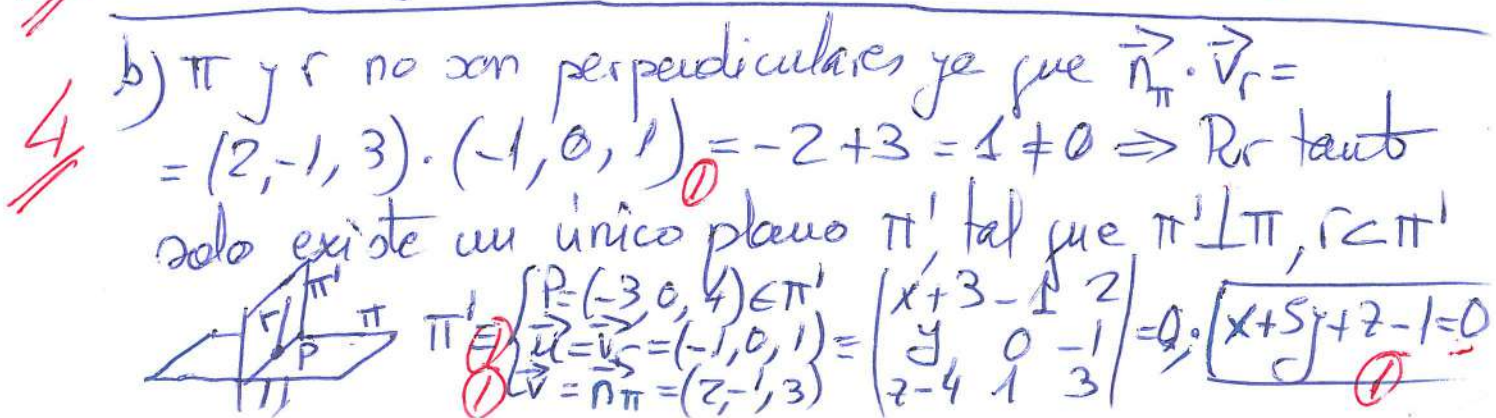 b) π y r no son perpendiculares ya que n⃗_π · v⃗_r =
4
= (2,-1,3) · (-1,0,1) = -2+3 = 1 ≠ 0 ⇒ Por tanto
1
solo existe un único plano π', tal que π' ⊥ π, r ⊂ π'
π' r P π
π' ≡ { P=(-3,0,4) ∈ π'
u⃗ = v⃗_r = (-1,0,1)
v⃗ = n⃗_π = (2,-1,3)
= | x+3 -1 2 |
| y 0 -1 | = 0; x+5y+z-1=0
| z-4 1 3 |
1
1
1